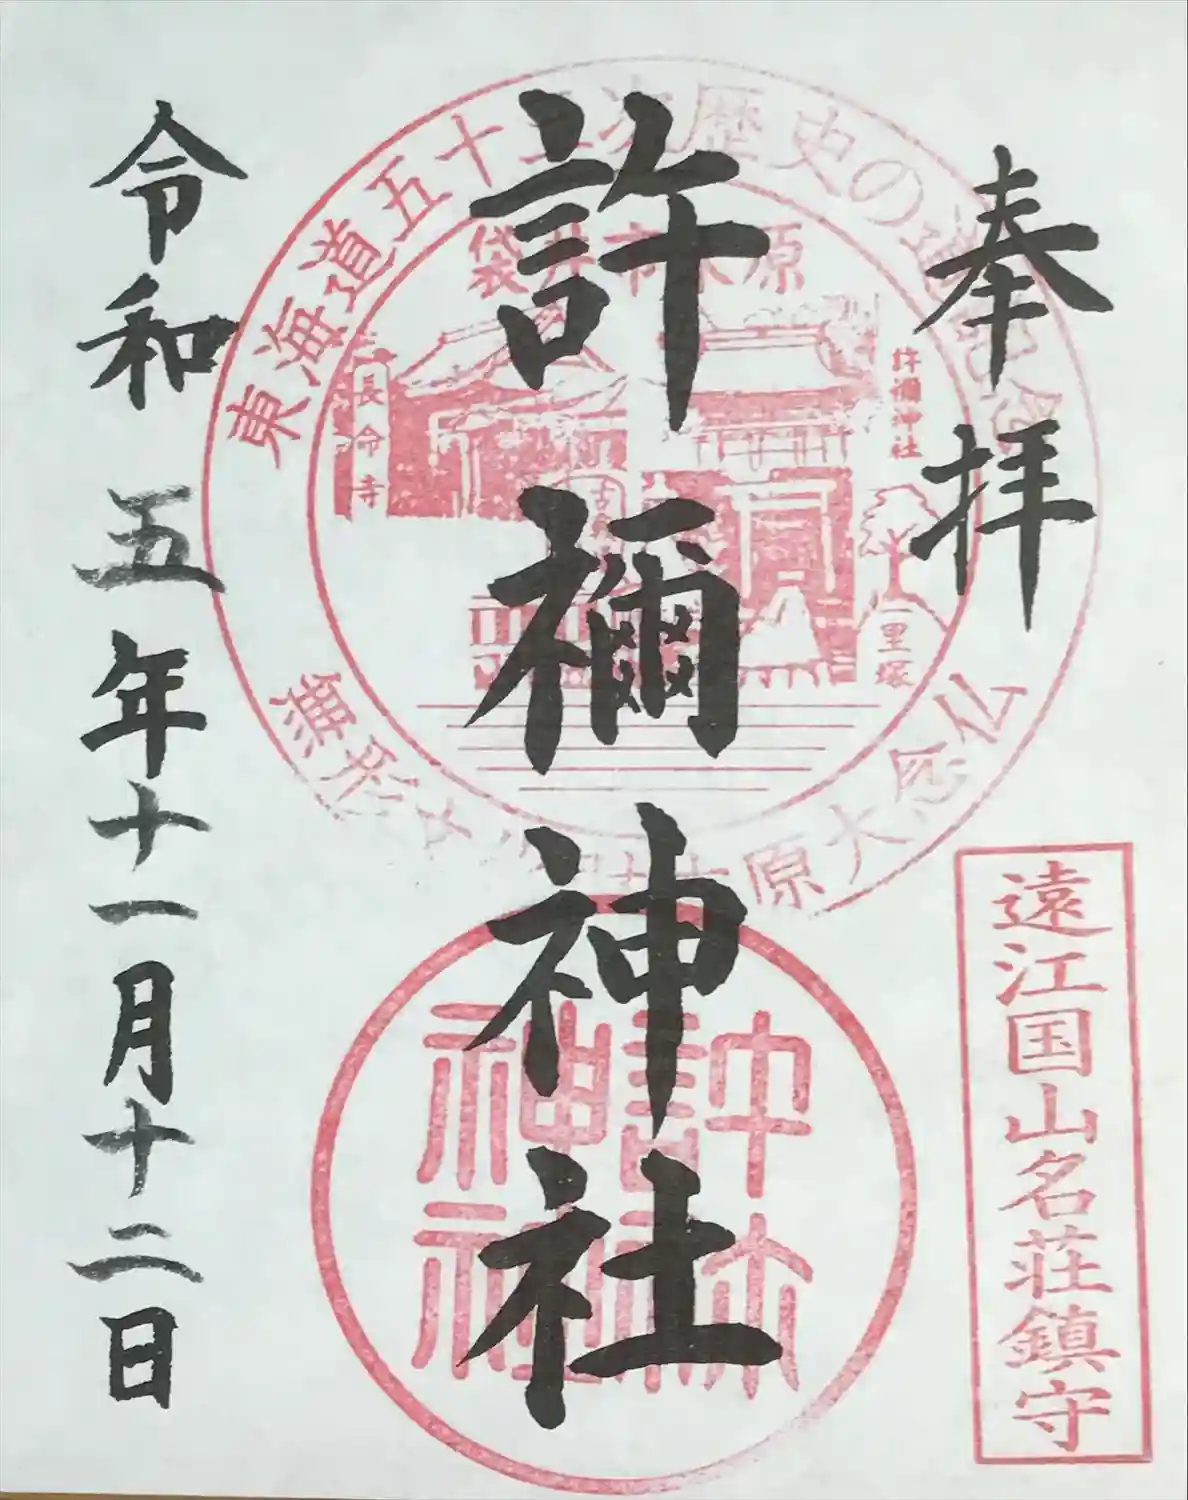 奉拝
許禰神社
令和五年十一月十二日
東海道五十三次歴史の道
袋井市木原
長命寺
許禰神社
一里塚
原大恩仏
遠江国山名荘鎮守